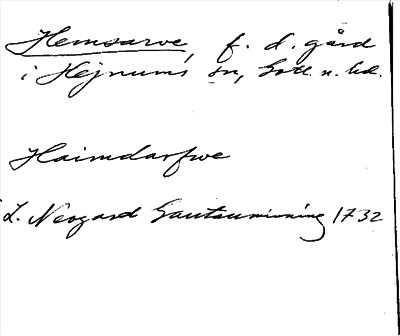 Hemsarve, f. d. gård
i Hejnums sn, Gotl. n. hd.
Haimdarfwe
L. Neogard Gautauminning 1732